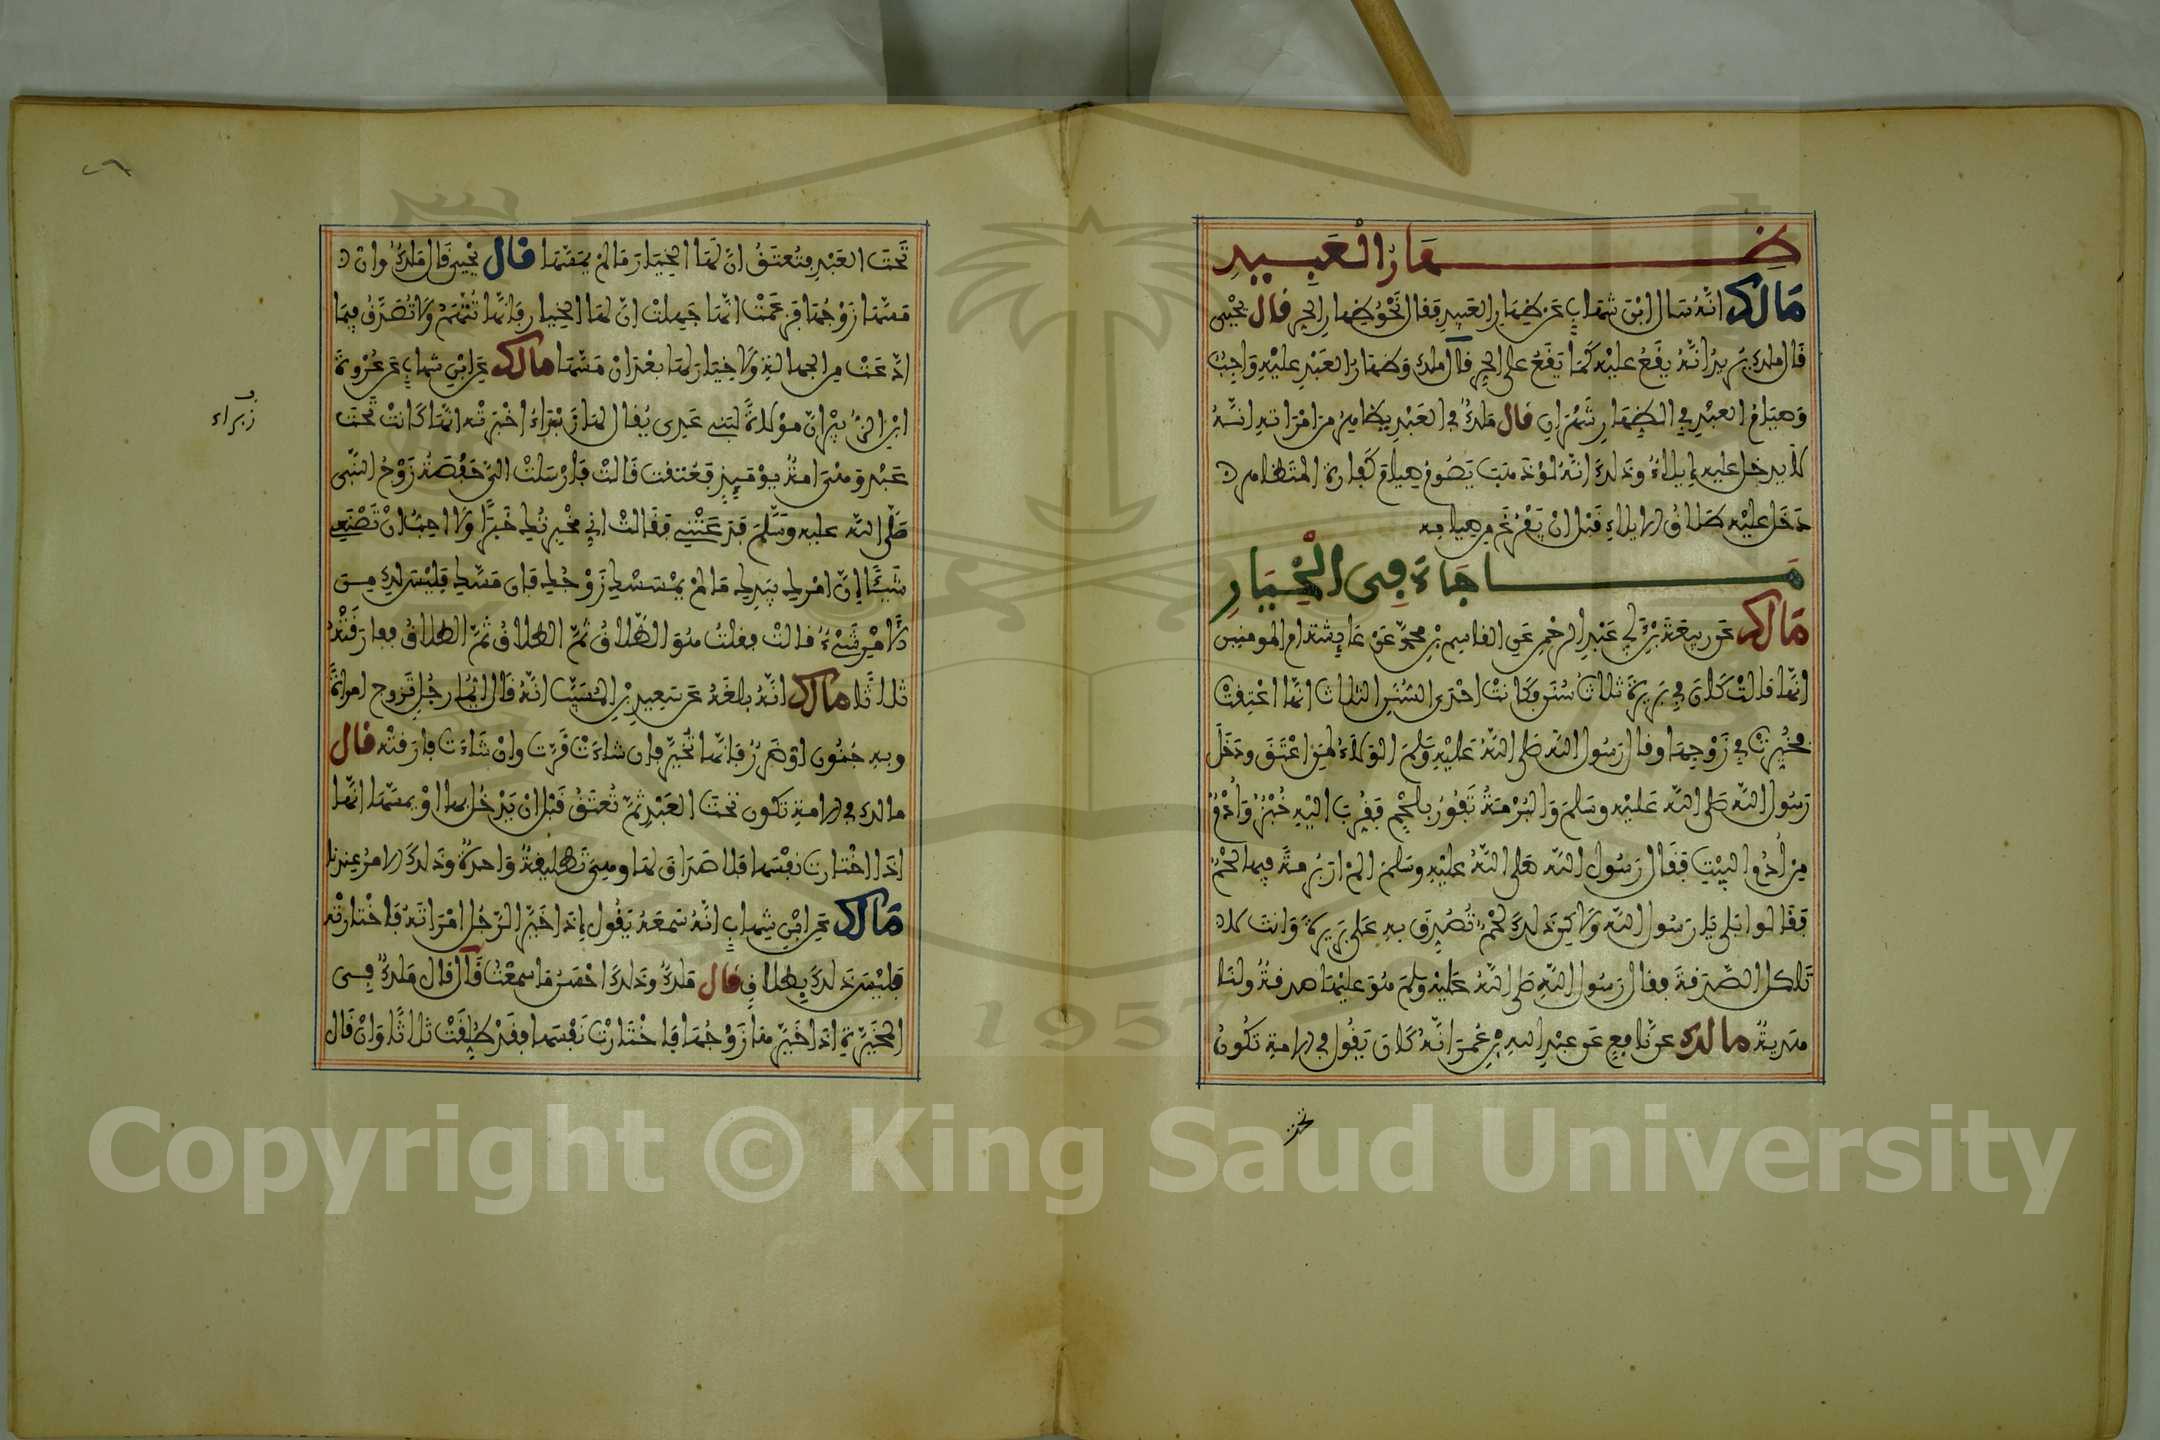 ظهار العبيد
مالك انه سال ابن شهاب عن ظهار العبيد فقال نحو ظهار الحر قال يحيى
قال ملك يريد انه يقع عليه كما يقع على الحر قال ملك وظهار العبد عليه واجب
وصيام العبد في الظهار شهران قال ملك في العبد يظاهر من امراته انه
لا يدخل عليه ايلاء وذلك انه لو ذهب يصوم صيام كفارة المتظاهر
دخل عليه طلاق الايلاء قبل ان يفرغ من صيامه
ما جاء في الخيار
مالك عن ربيعة بن ابي عبد الرحمن عن القاسم بن محمد عن عايشة ام المومنين
انها قالت كان في بريرة ثلاث سنن وكانت احدى السنن الثلاث انها اعتقت
فخيرت في زوجها وقال رسول الله صلى الله عليه وسلم الولاء لمن اعتق ودخل
رسول الله صلى الله عليه وسلم والبرمة تفور بلحم فقرب اليه خبز وادم
من ادم البيت فقال رسول الله صلى الله عليه وسلم الم ار برمة فيها لحم
فقالوا بلى يا رسول الله ولاكن ذلك لحم تصدق به على بريرة وانت لا
تاكل الصدقة فقال رسول الله صلى الله عليه وسلم هو عليها صدقة ولنا
هدية مالك عن نافع عن عبد الله بن عمر انه كان يقول في الامة تكون
تحت
٢٦
تحت العبد فتعتق ان لها الخيار ما لم يمسها قال يحيى قال ملك وان
مسها زوجها فزعمت انها جهلت ان لها الخيار فانها تتهم ولا تصدق بما
ادعت من الجهالة ولا خيار لها بعد ان مسها مالك عن ابن شهاب عن عروة
ابن الزبير ان مولاة لبني عدي يقال لها زبراء اخبرته انها كانت تحت
زبراء
عبد وهي امة يوميذ فعتقت قالت فارسلت الي حفصة زوج النبي
صلى الله عليه وسلم فدعتني فقالت اني مخبرتك خبرا ولا احب ان تصنعي
شيئا ان امرك بيدك ما لم يمسسك زوجك فان مسك فليس لك من
الامر شيء قالت فقلت هو الطلاق ثم الطلاق ثم الطلاق ففارقته
ثلاثا مالك انه بلغه عن سعيد بن المسيب انه قال ايما رجل تزوج امراة
وبه جنون او ضرر فانها تخير فان شاءت قرت وان شاءت فارقته قال
مالك في الامة تكون تحت العبد ثم تعتق قبل ان يدخل بها او يمسها انها
اذا اختارت نفسها فلا صداق لها وهي تطليقة واحدة وذلك الامر عندنا
مالك عن ابن شهاب انه سمعه يقول اذا خير الرجل امراته فاختارته
فليس ذلك بطلاق قال ملك وذلك احسن ما سمعت قال ملك في
المخيرة اذا خيرها زوجها فاختارت نفسها فقد طلقت ثلاثا وان قال
Copyright © King Saud University
1957